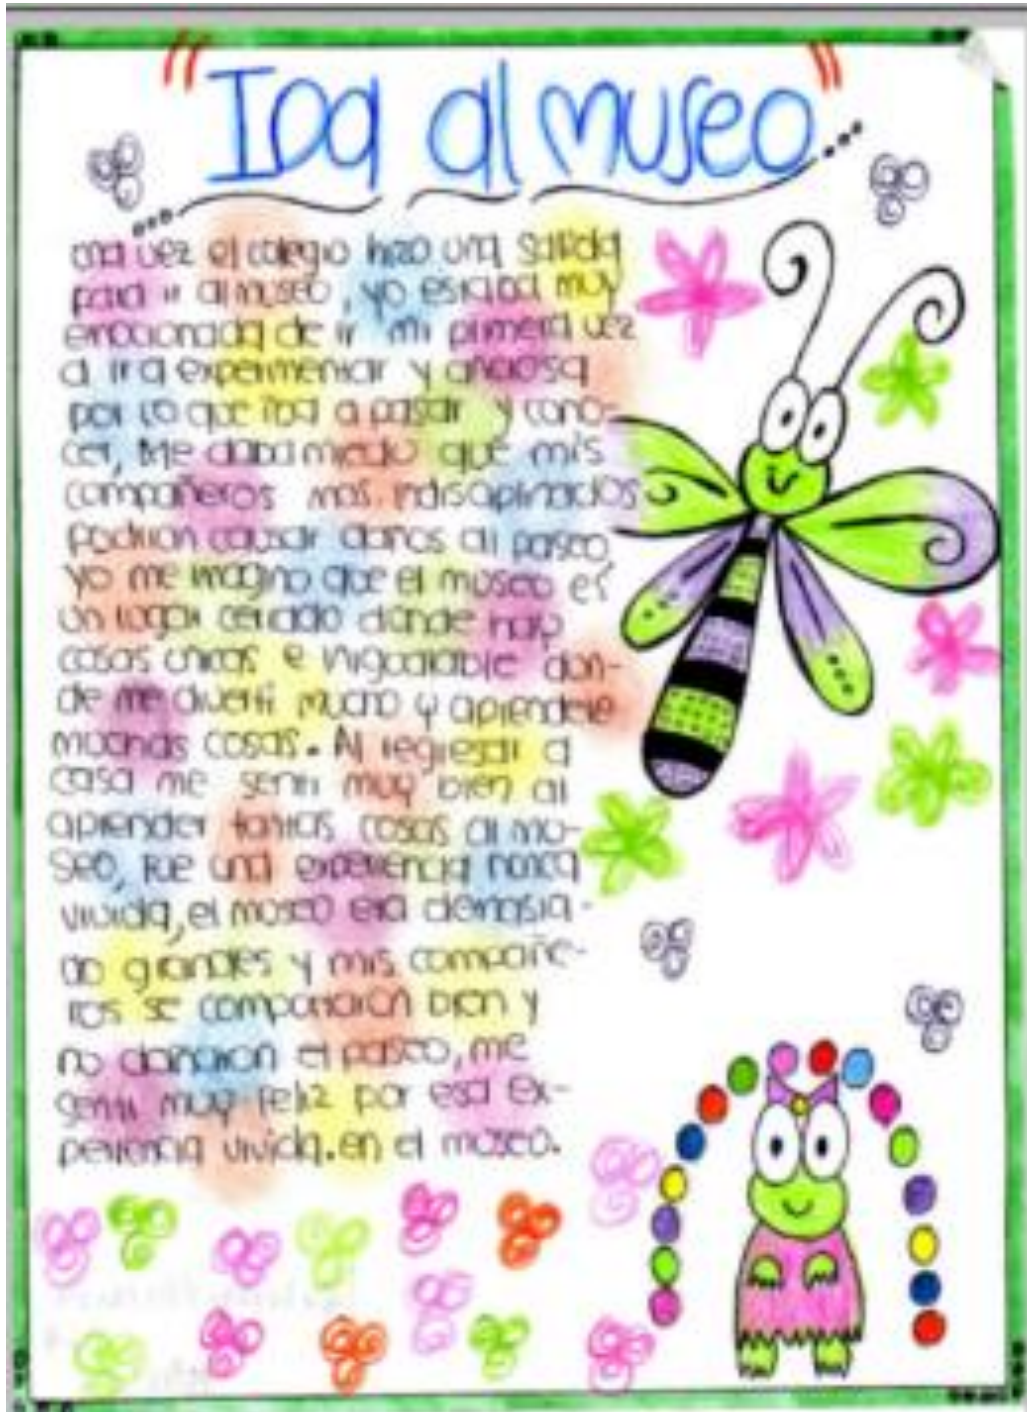 "Ida al museo"
una vez el colegio hizo una salida
para ir al museo, yo estaba muy
emocionada de ir mi primera vez
a ir a experimentar y ansiosa
por lo que iba a pasar y cono-
cer, me daba miedo que mis
compañeros mas indisciplinados
podrian causar daños al paseo
yo me imagino que el museo es
un lugar cerrado donde hay
cosas unicas e inigualable don-
de me diverti mucho y aprendere
muchas cosas. Al regresar a
casa me senti muy bien al
aprender tantas cosas al mu-
seo, fue una experiencia nunca
vivida, el museo era demasia-
do grandes y mis compañe-
ros se comportaron bien y
no dañaron el paseo, me
senti muy feliz por esa ex-
periencia vivida. en el museo.